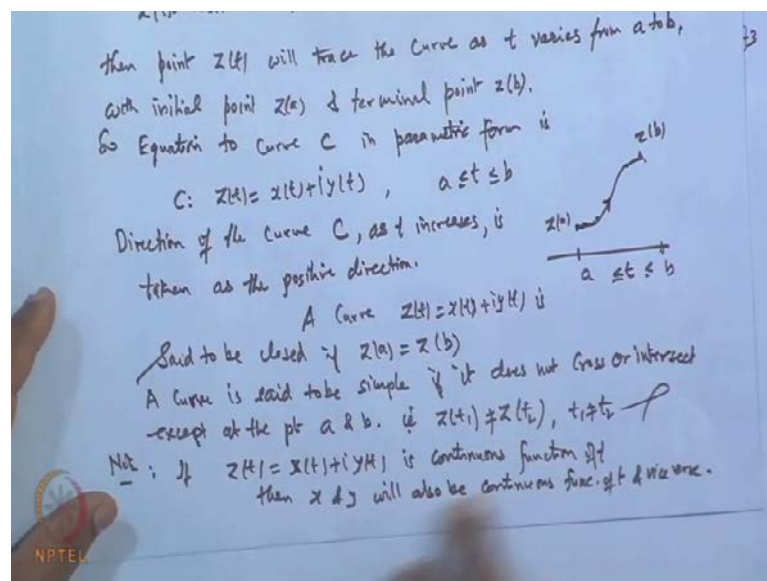 then point z(t) will trace the curve as t varies from a to b,
with initial point z(a) & terminal point z(b).
So Equation to curve C in parametric form is
C: z(t) = x(t) + i y(t) , a ≤ t ≤ b
z(b)
z(a)
a ≤ t ≤ b
Direction of the curve C, as t increases, is
taken as the positive direction.
A Curve z(t) = x(t) + i y(t) is
Said to be closed if z(a) = z(b)
A Curve is said to be simple if it does not Cross or intersect
except at the pt a & b. ie z(t₁) ≠ z(t₂), t₁ ≠ t₂
Note : If z(t) = x(t) + i y(t) is continuous function of t
then x & y will also be continuous func. of t & vice verse.
NPTEL